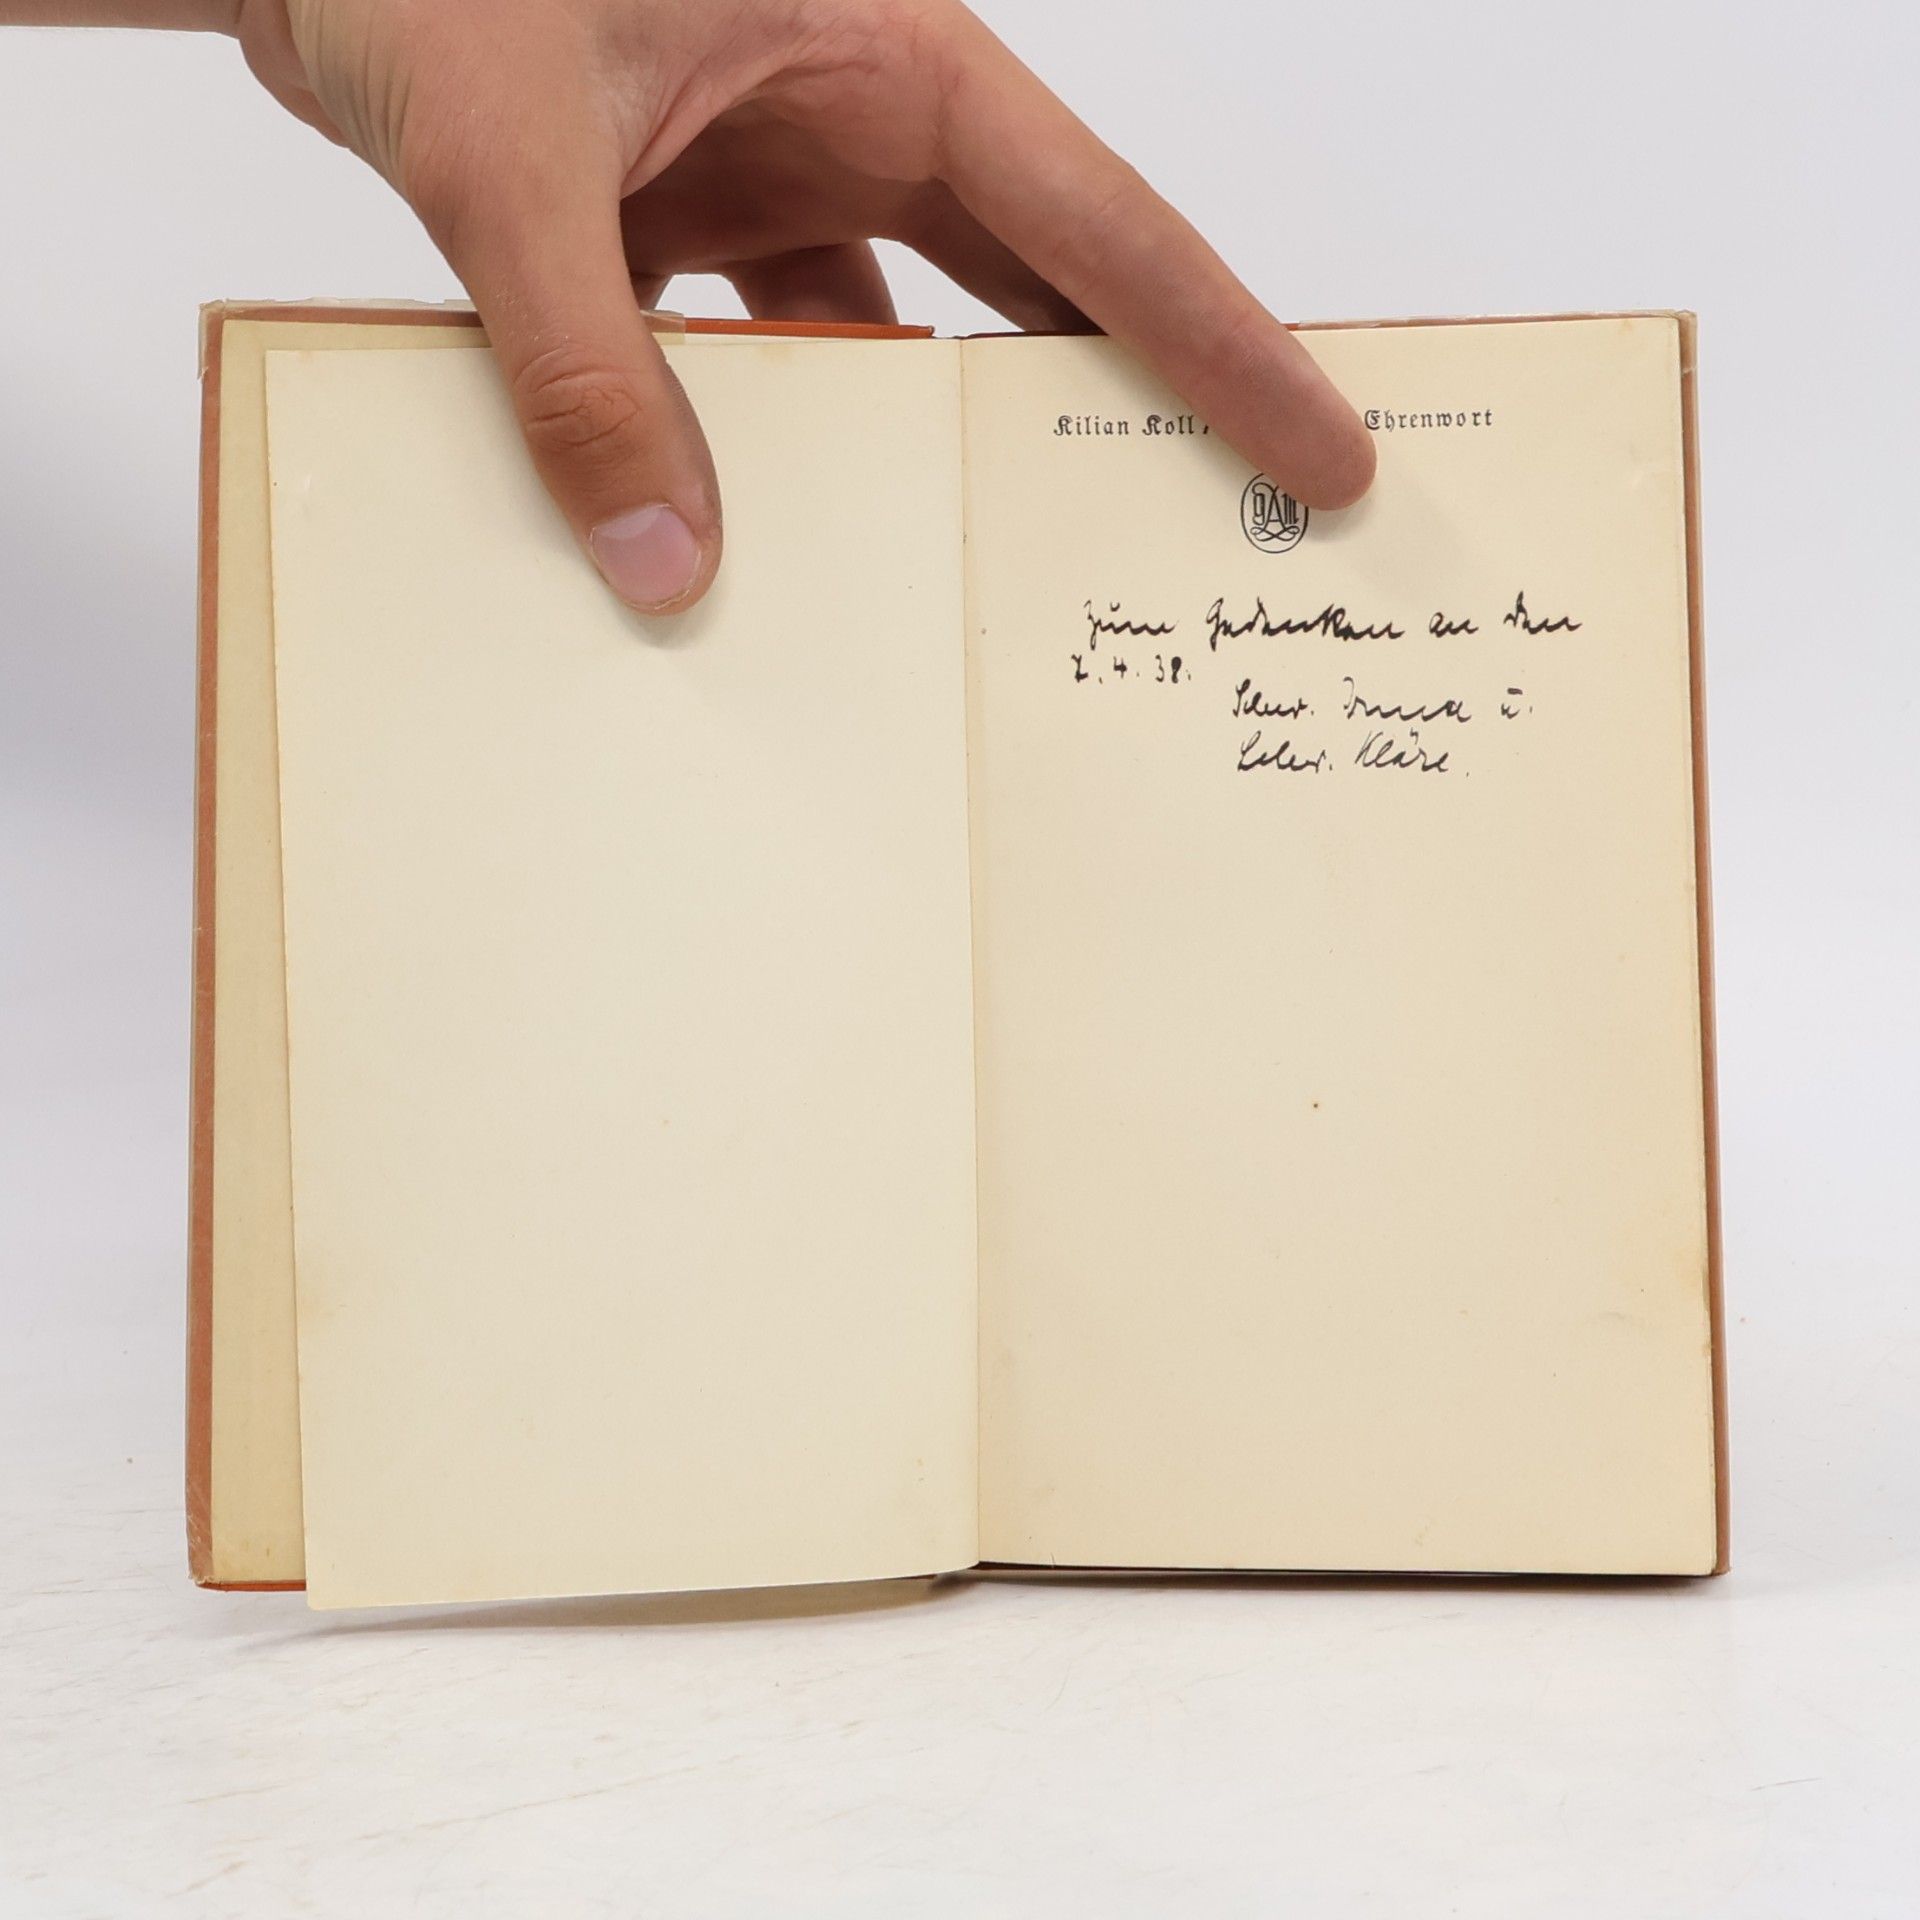 Kilian Koll / Ehrenwort
gAlL
Zum Gedenken an den
7. 4. 38.
Schw. Irma u.
Schw. Kläre.